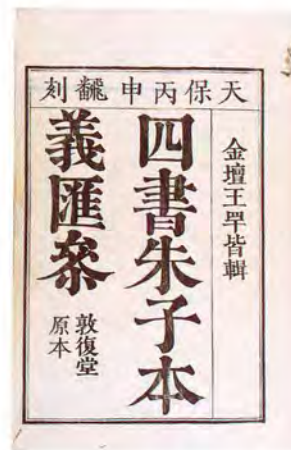 天保丙申飜刻
金壇王罕皆輯
四書朱子本
義匯叅
敦復堂
原本